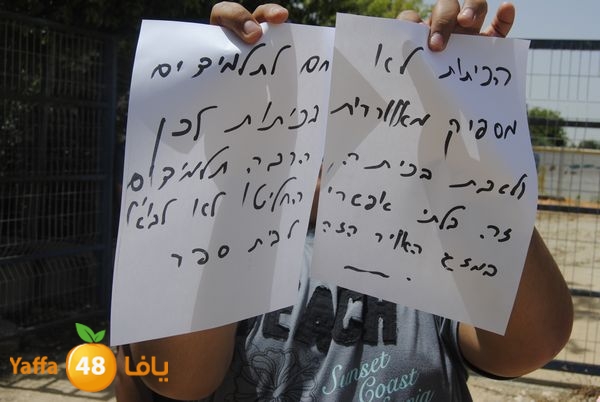 הכיתות לא
מספיק מאווררות
ולאבת בכיתה
זה בלתי אפשרי
במזג האויר הזה
חם לתלמידים
בכיתות לכן
הרבה תלמידים
החליטו לא לבוא
לבית ספר
EACH
Sunset
Coast
Yaffa 48 يافا